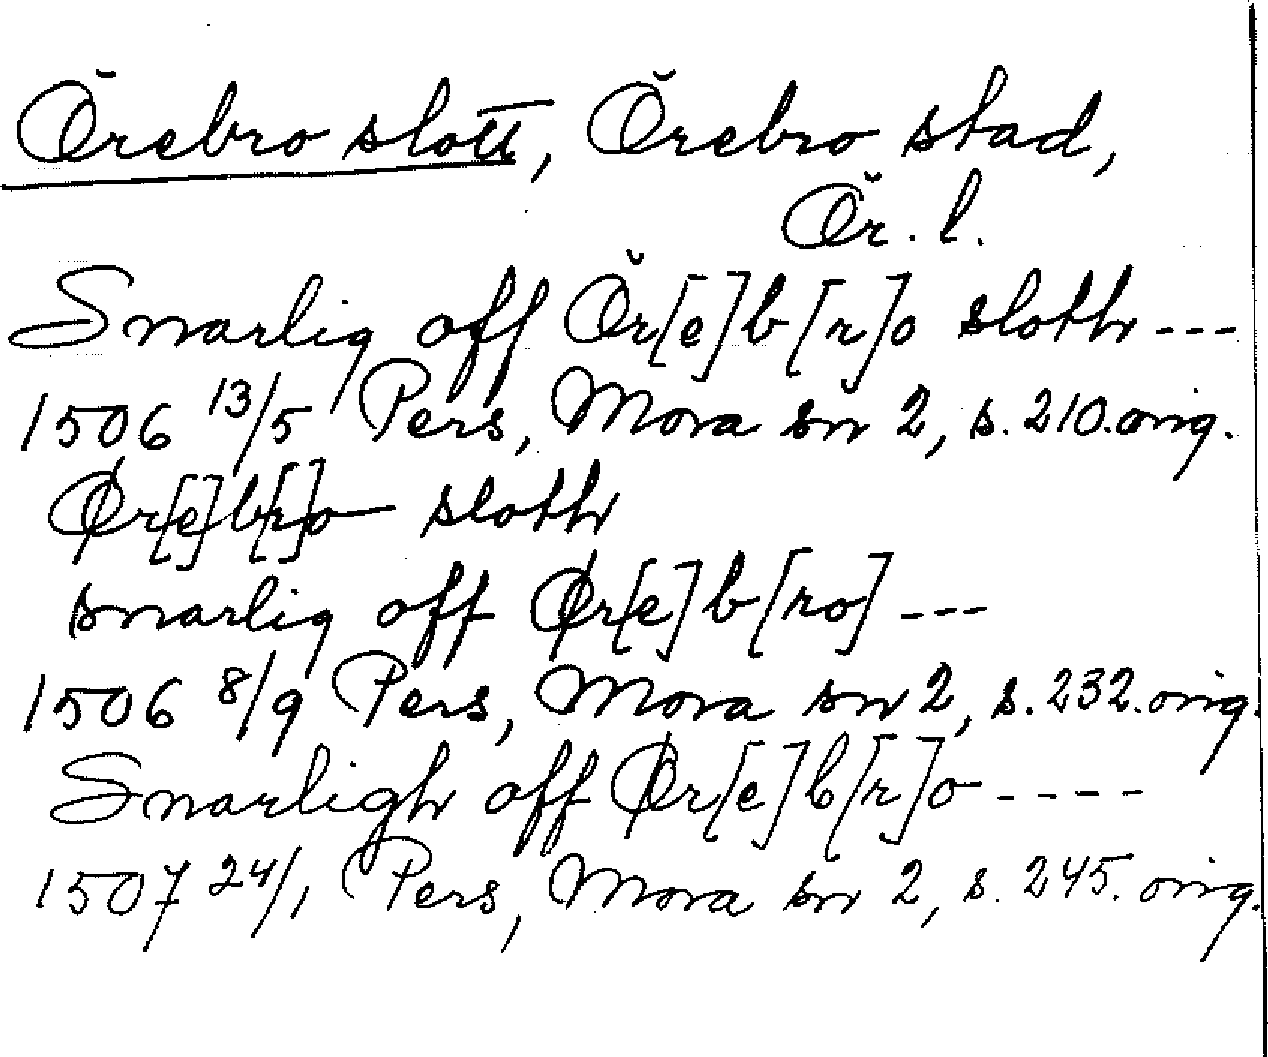 Örebro slott, Örebro stad,
Ör. l.
Snarlig off Ör[e]b[r]o sloth ---
1506 13/5 Pers, Mora sn 2, s. 210. orig.
Ør[e]b[r]o sloth
snarlig off Ør[e]b[ro] ---
1506 8/9 Pers, Mora sn 2, s. 232. orig.
Snarligh off Ør[e]b[r]o ----
1507 24/1 Pers, Mora sn 2, s. 245. orig.